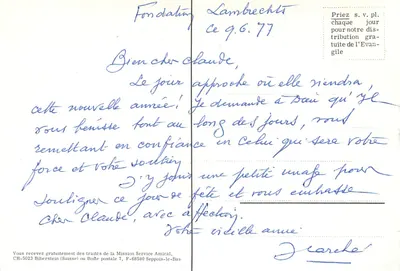 Fondation Lambrechts
ce 9.6.77
Priez s. v. pl.
chaque jour
pour notre dis-
tribution gra-
tuite de l'Evan-
gile
Bien cher Claude,
Le jour approche où elle viendra,
cette nouvelle année! Je demande à Dieu qu'Il
vous bénisse tout au long des jours, vous
remettant en confiance in Celui qui sera votre
force et votre soutien.
J'y joins une petite image pour
souligner ce jour de fête et vous embrasse
cher Claude, avec affection.
Votre vieille amie
Vous recevrez gratuitement des traités de la Mission Service Amical,